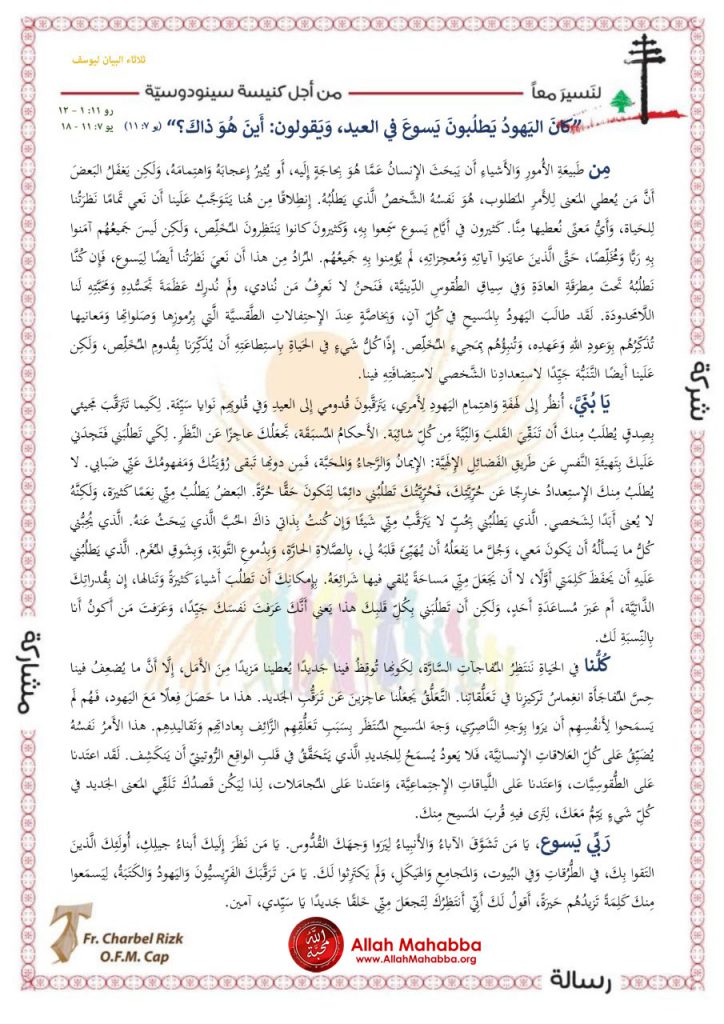 ثلاثاء البيان ليوسف
لنَسيرَ معاً
من أجل كنيسة سينودوسيّة
رو ١١: ١ - ١٢
يو ٧: ١١ - ١٨
"كانَ اليَهودُ يَطلُبونَ يَسوعَ في العيد، وَيَقولون: أَينَ هُوَ ذاكَ؟" (يو ٧: ١١)
مِن طَبيعَةِ الأُمورِ وَالأَشياءِ أَن يَبحَثَ الإنسانُ عَمَّا هُوَ بِحاجَةٍ إِلَيه، أَو يُثيرُ إعجابَهُ وَاهتِمامَهُ، وَلَكِن يَغفَلُ البَعضَ
أَنَّ مَن يُعطي المعنى لِلأَمرِ المطلوب، هُوَ نَفسُهُ الشَّخصُ الَّذي يَطلُبُهُ. إنطِلاقًا مِن هُنا يَتَوَجَّبُ عَلَينا أَن نَعي تَمامًا نَظرَتُنا
لِلحَياة، وَأَيُّ مَعنًى نُعطيها مِنَّا. كَثيرون في أَيَّامِ يَسوع سَمِعوا بِهِ، وَكَثيرونَ كانوا يَنتَظِرونَ المُخَلِّص، وَلَكِن لَيسَ جَميعُهُم آمَنوا
بِهِ رَبًّا وَمُخَلِّصًا، حَتَّى الَّذينَ عايَنوا آياتِهِ وَمُعجِزاتِهِ، لَم يُؤمِنوا بِهِ جَميعُهُم. المُرادُ مِن هذا أَن نَعيَ نَظرَتُنا أَيضًا لِيَسوع، فَإِن كُنَّا
نَطلُبُهُ تَحتَ مِطرَقَةِ العادَةِ وَفي سِياقِ الطُّقوسِ الدِّينِيَّة، فَنَحنُ لا نَعرِفُ مَن نُنادي، وَلَم نُدرِك عَظَمَةَ تَجَسُّدِهِ وَمَحَبَّتِهِ لَنا
اللَّامَحدودَة. لَقَد طالَبَ اليَهودُ بِالمَسيحِ في كُلِّ آنٍ، وَبِخاصَّةٍ عِندَ الإحتِفالاتِ الطَّقسِيَّة الَّتي بِرُموزِها وَصَلواتِها وَمَعانيها
تُذَكِّرُهُم بِوَعودِ اللهِ وَعَهدِه، وَتُنبِؤُهُم بِمَجيءِ المُخَلِّص. إِذًا كُلُّ شَيءٍ في الحَياةِ بِاستِطاعَتِهِ أَن يُذَكِّرَنا بِقُدومِ المُخَلِّص، وَلَكِن
عَلَينا أَيضًا التَّنَبُّهَ جَيِّدًا لاستِعدادِنا الشَّخصي لاستِضافَتِهِ فينا.
يَا بُنَيَّ، أُنظُر إِلى لَهفَةِ وَاهتِمامِ اليَهودِ لِأَمري، يَتَرَقَّبونَ قُدومي إِلى العيدِ وَفي قُلوبِهِم نَوايا سَيِّئَة. لِكَيما تَتَرَقَّبَ مَجيئي
بِصِدقٍ يُطلَبُ مِنكَ أَن تَنَقِّيَ القَلبَ وَالنِّيَّةَ مِن كُلِّ شائِبَة. الأَحكامُ المُسبَقَة، تَجعَلُكَ عاجِزًا عَنِ النَّظَر. لِكَي تَطلُبَني فَتَجِدَني
عَلَيكَ بِتَهيِئَةِ النَّفسِ عَن طَريقِ الفَضائِلِ الإلهِيَّة: الإيمانُ وَالرَّجاءُ وَالمَحَبَّة، فَمِن دونِها تَبقى رُؤيَتُكَ وَمَفهومُكَ عَنِّي ضَبابي. لا
يُطلَبُ مِنكَ الإستِعدادُ خارِجًا عَن حُرِّيَّتِكَ، فَحُرِّيَّتُكَ تَطلُبُني دائِمًا لِتَكونَ حَقًّا حُرَّة. البَعضُ يَطلُبُ مِنِّي نِعَمًا كَثيرَة، وَلَكِنَّهُ
لا يُعنى أَبَدًا لِشَخصي. الَّذي يَطلُبُني بِحُبٍّ لا يَتَرَقَّبُ مِنِّي شَيئًا وَإِن كُنتُ بِذاتي ذاكَ الحُبَّ الَّذي يَبحَثُ عَنهُ. الَّذي يُحِبُّني
كُلُّ ما يَسأَلُهُ أَن يَكونَ مَعي، وَجُلَّ ما يَفعَلُهُ أَن يُهَيِّئَ قَلبَهُ لي، بِالصَّلاةِ الحارَّة، وَبِدُموعِ التَّوبَة، وَبِشَوقِ المُغرَم. الَّذي يَطلُبُني
عَلَيهِ أَن يَحفَظَ كَلِمَتي أَوَّلًا، لا أَن يَجعَلَ مِنِّي مَساحَةً يُلقي فيها شَرائِعَهُ. بِإِمكانِكَ أَن تَطلُبَ أَشياءَ كَثيرَةً وَتَنالَها، إِن بِقُدراتِكَ
الذَّاتِيَّة، أَم عَبرَ مُساعَدَةِ أَحَدٍ، وَلَكِن أَن تَطلُبَني بِكُلِّ قَلبِكَ هذا يَعني أَنَّكَ عَرَفتَ نَفسَكَ جَيِّدًا، وَعَرَفتَ مَن أَكونُ أَنا
بِالنِّسبَةِ لَك.
كُلُّنا في الحَياةِ نَنتَظِرُ المُفاجآتِ السَّارَّة، لِكَونِها توقِظُ فينا جَديدًا يُعطينا مَزيدًا مِنَ الأَمَل، إِلَّا أَنَّ ما يُضعِفُ فينا
حِسَّ المُفاجَأَةِ انغِماسُ تَركيزِنا في تَعَلُّقاتِنا. التَّعَلُّقُ يَجعَلُنا عاجِزينَ عَن تَرَقُّبِ الجَديد. هذا ما حَصَلَ فِعلًا مَعَ اليَهود، فَهُم لَم
يَسمَحوا لِأَنفُسِهِم أَن يَروا بِوَجهِ النَّاصِرِيّ، وَجهَ المَسيحِ المُنتَظَر بِسَبَبِ تَعَلُّقِهِم الزَّائِف بِعاداتِهِم وَتَقاليدِهِم. هذا الأَمرُ نَفسُهُ
يُضَيِّقُ عَلى كُلِّ العَلاقاتِ الإنسانِيَّة، فَلا يَعودُ يُسمَحُ لِلجَديدِ الَّذي يَتَحَقَّقُ في قَلبِ الواقِعِ الرُّوتينِيّ أَن يَنكَشِف. لَقَد اعتَدنا
عَلى الطُّقوسِيَّات، وَاعتَدنا عَلى اللِّياقاتِ الإجتِماعِيَّة، وَاعتَدنا عَلى المُجامَلات، لِذا لِيَكُن قَصدُكَ تَلَقِّي المَعنى الجَديد في
كُلِّ شَيءٍ يَتِمُّ مَعَكَ، لِتَرى فيهِ قُربَ المَسيحِ مِنكَ.
رَبِّي يَسوع، يا مَن تَشَوَّقَ الآباءُ وَالأَنبِياءُ لِيَرَوا وَجهَكَ القُدُّوس. يا مَن نَظَرَ إِلَيكَ أَبناءُ جيلِكَ، أُولَئِكَ الَّذينَ
التَقوا بِكَ، في الطُّرُقاتِ وَفي البُيوت، وَالمَجامِعِ وَالهَيكَل، وَلَم يَكتَرِثوا لَكَ. يا مَن تَرَقَّبَكَ الفَرِّيسِيُّونَ وَاليَهودُ وَالكَتَبَةُ، لِيَسمَعوا
مِنكَ كَلِمَةً تَزيدُهُم حَيرَةً، أَقولُ لَكَ أَنِّي أَنتَظِرُكَ لِتَجعَلَ مِنِّي خَلقًا جَديدًا يا سَيِّدي، آمين.
شركة
مشاركة
رسالة
Fr. Charbel Rizk
O.F.M. Cap
الله محبة
Allah Mahabba
www.AllahMahabba.org